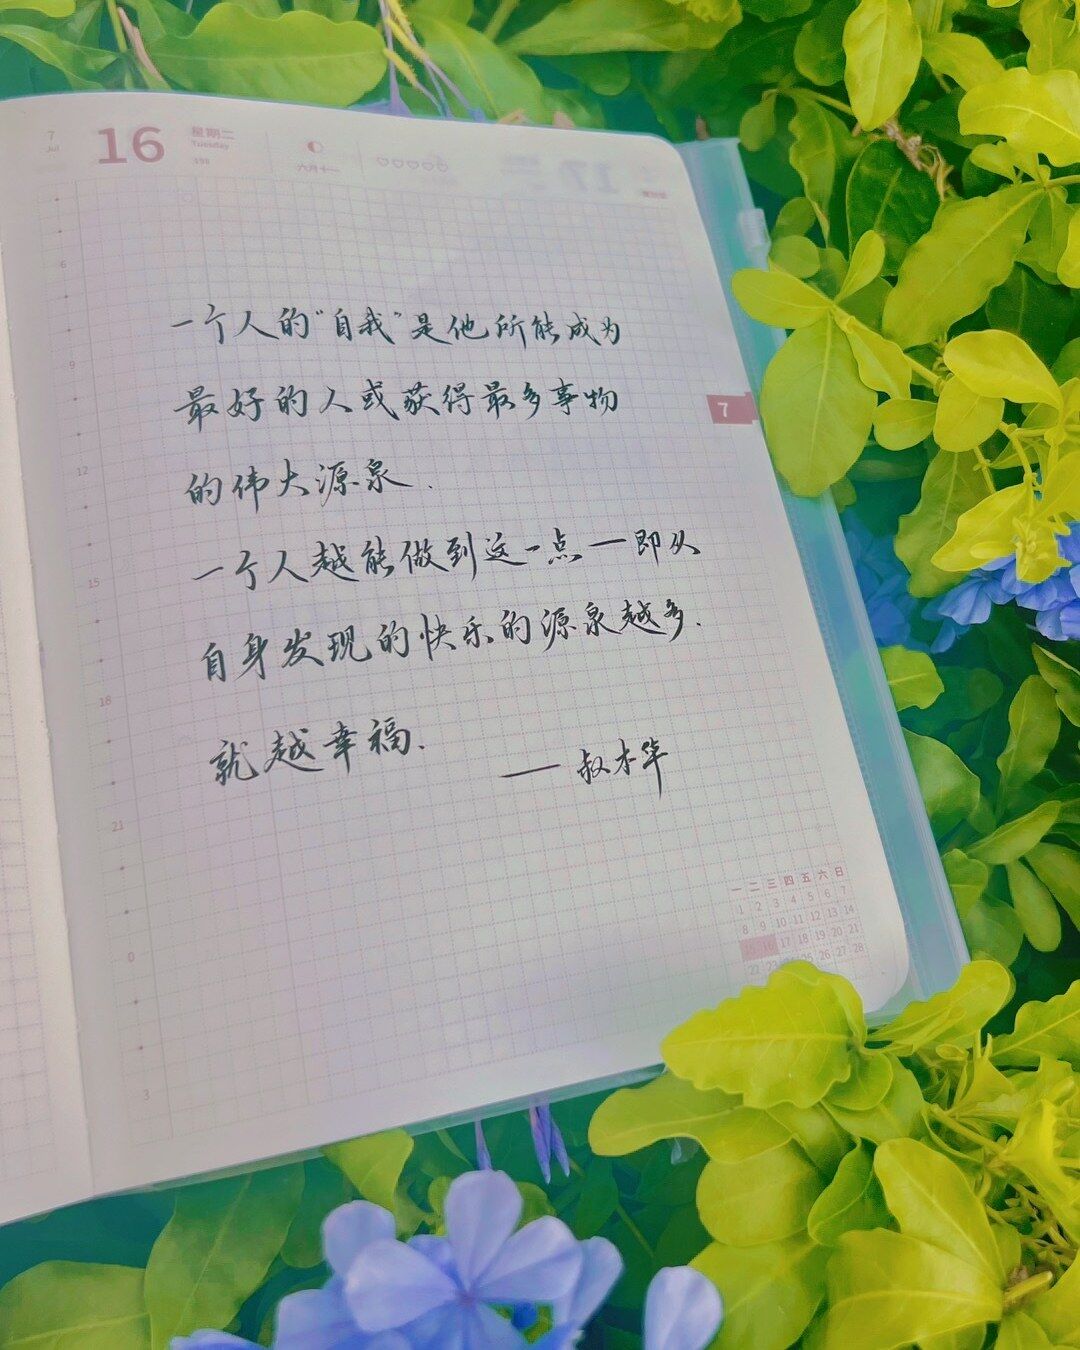 7
Jul
16
星期二
Tuesday
198
六月十一
6
9
12
15
18
21
0
3
7
一个人的“自我”是他所能成为
最好的人或获得最多事物
的伟大源泉.
一个人越能做到这一点一即从
自身发现的快乐的源泉越多.
就越幸福.
—— 叔本华
一 二 三 四 五 六 日
1 2 3 4 5 6 7
8 9 10 11 12 13 14
15 16 17 18 19 20 21
22 23 25 26 27 28